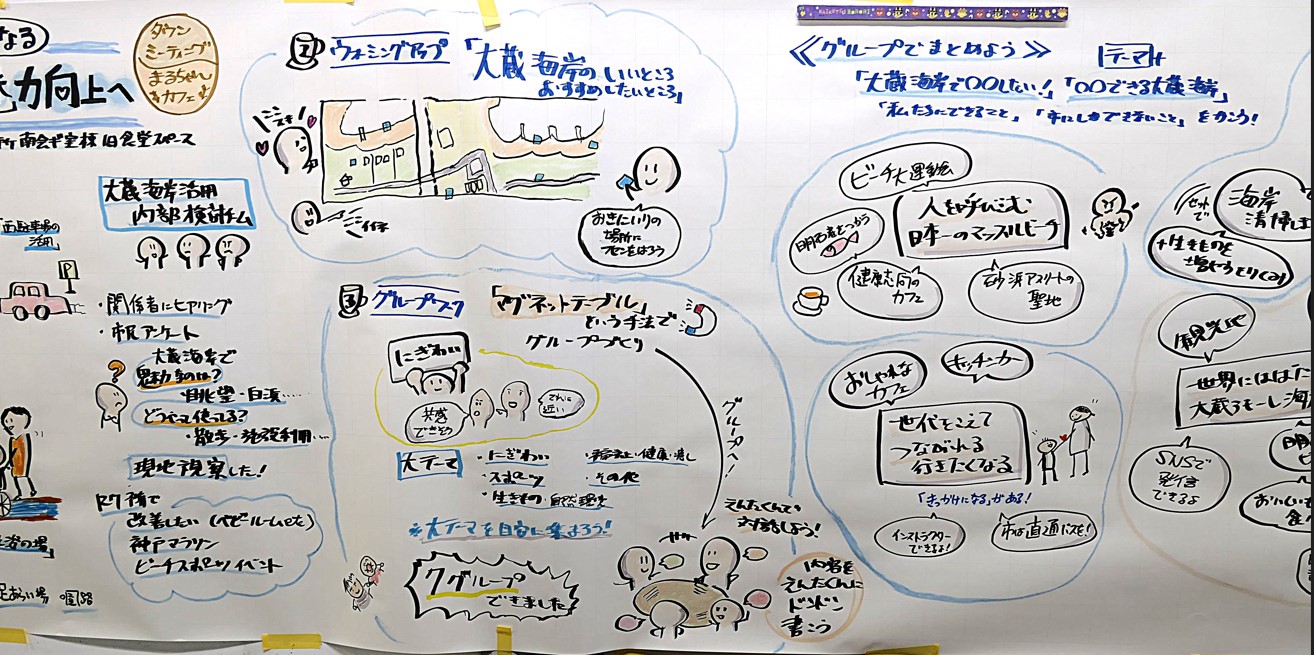 なる
力向上へ
タウン
ミーティング
まるちゃん
カフェ
南会議室棟 旧食堂スペース
大蔵海岸活用
内部検討チーム
西駐車場の
活用
P
・関係者にヒアリング
・市民アンケート
大蔵海岸で
魅力的なのは?
・眺望・白浜……
どうやって使ってる?
・散歩・施設利用…
現地視察した!
改善したい(ベビールームetc)
神戸マラソン
ビーチスポーツイベント
足あらい場
②ウォーミングアップ
「大蔵海岸のいいところ
おすすめしたいところ」
おきにいりの
場所に
フセンをはろう
③グループワーク
「マグネットテーブル」
という手法で
グループづくり
にぎわい
共感
できそう
てーまに
近い
グループへ!
大テーマ
・にぎわい
・スポーツ
・生きもの・自然環境
・その他
※大テーマを目安に集まろう!
7グループ
できました
えんたくんで
対話しよう!
内容を
えんたくんに
ドンドン
書こう
≪グループでまとめよう≫
テーマ
「大蔵海岸で〇〇したい!」「〇〇できる大蔵海岸」
「私たちにできること」「市にしかできないこと」をかこう!
ビーチ大運動会
人を呼びこむ
日本一のマッスルビーチ
明石産をつかう
健康志向の
カフェ
砂浜アスリートの
聖地
おしゃれな
カフェ
キッチンカー
世代をこえて
つながれる
行きたくなる
「きっかけになる」がある!
インストラクター
できるよ!
市は直通バスを!
セットで
海岸
清掃
観光地
世界にはばた
SNSで
発信
できるよ